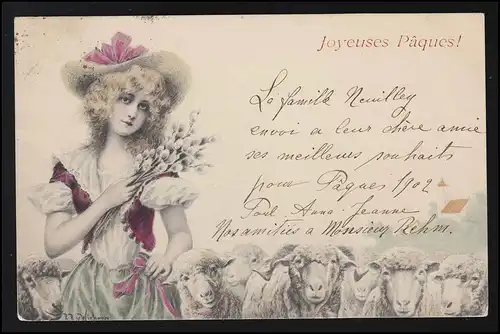 Joyeuses Pâques!
La famille Neuilley
envoi a leur chère amie
ses meilleurs souhaits
pour Pâques 1902
Paul Anna Jeanne
Nos amitiés a Monsieur Rehm.